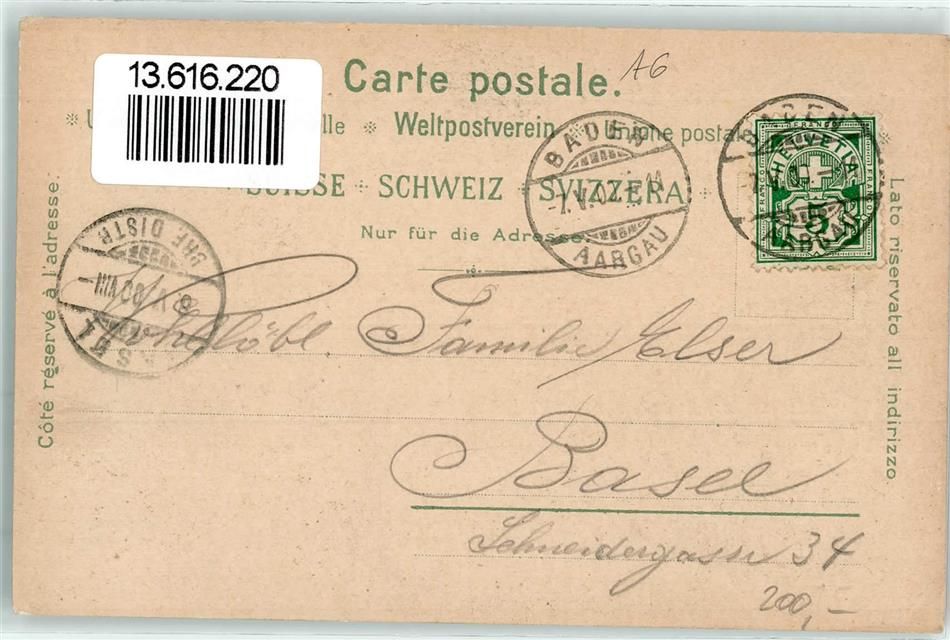 13.616.220
Carte postale.
A6
Weltpostverein Unione postale
SUISSE SCHWEIZ SVIZZERA
Nur für die Adresse.
Côté réservé à l'adresse.
Lato riservato all indirizzo
BADEN
AARGAU
BADEN
HELVETIA
5
AARGAU
BRF DISTR
VIII
Wohllöbl. Familie Elser
Basel
Schneidergasse 34
200,-